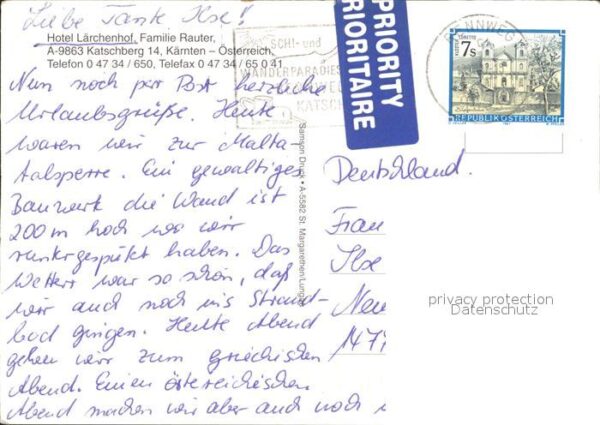 Liebe Tante Ilse!
Hotel Lärchenhof, Familie Rauter,
A-9863 Katschberg 14, Kärnten – Österreich,
Telefon 0 47 34 / 650, Telefax 0 47 34 / 65 0 41
Nun noch per Post herzliche
Urlaubsgrüße. Heute
waren wir zur Malta-
talsperre. Ein gewaltiges
Bauwerk die Wand ist
200 m hoch wo wir
runtergespukt haben. Das
Wetter war so schön, daß
wir auch noch ins Strand-
bad gingen. Heute Abend
gehen wir zum griechischen
Abend. Einen österreichischen
Abend machen wir aber auch noch
SCHI- und
WANDERPARADIES
KATSCH
PRIORITY
PRIORITAIRE
RENNWEG
7 S
REPUBLIK ÖSTERREICH
Samson Druck • A-5582 St. Margarethen/Lungau
Deutschland.
Frau
Ilse
privacy protection
Datenschutz